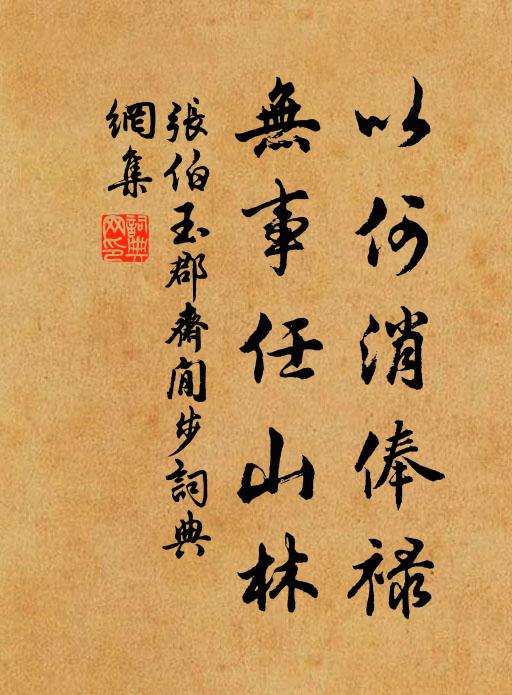 以何消俸祿
無事任山林
張伯玉郡齋閒步詞典
網集
詞典
网印